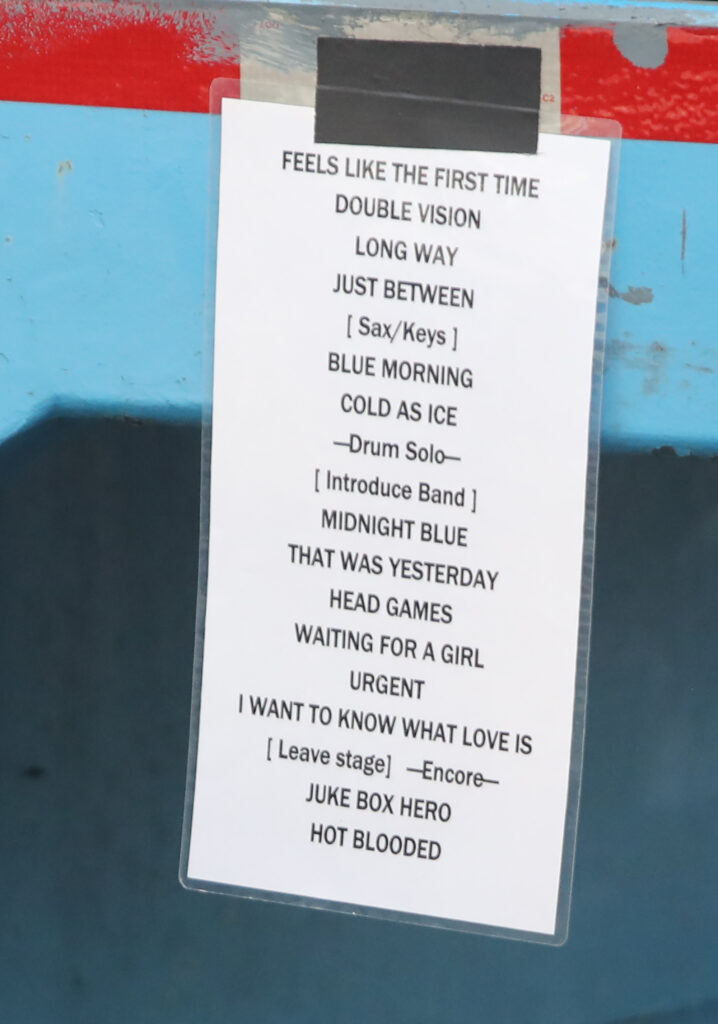 C2
FEELS LIKE THE FIRST TIME
DOUBLE VISION
LONG WAY
JUST BETWEEN
[ Sax/Keys ]
BLUE MORNING
COLD AS ICE
—Drum Solo—
[ Introduce Band ]
MIDNIGHT BLUE
THAT WAS YESTERDAY
HEAD GAMES
WAITING FOR A GIRL
URGENT
I WANT TO KNOW WHAT LOVE IS
[ Leave stage] —Encore—
JUKE BOX HERO
HOT BLOODED